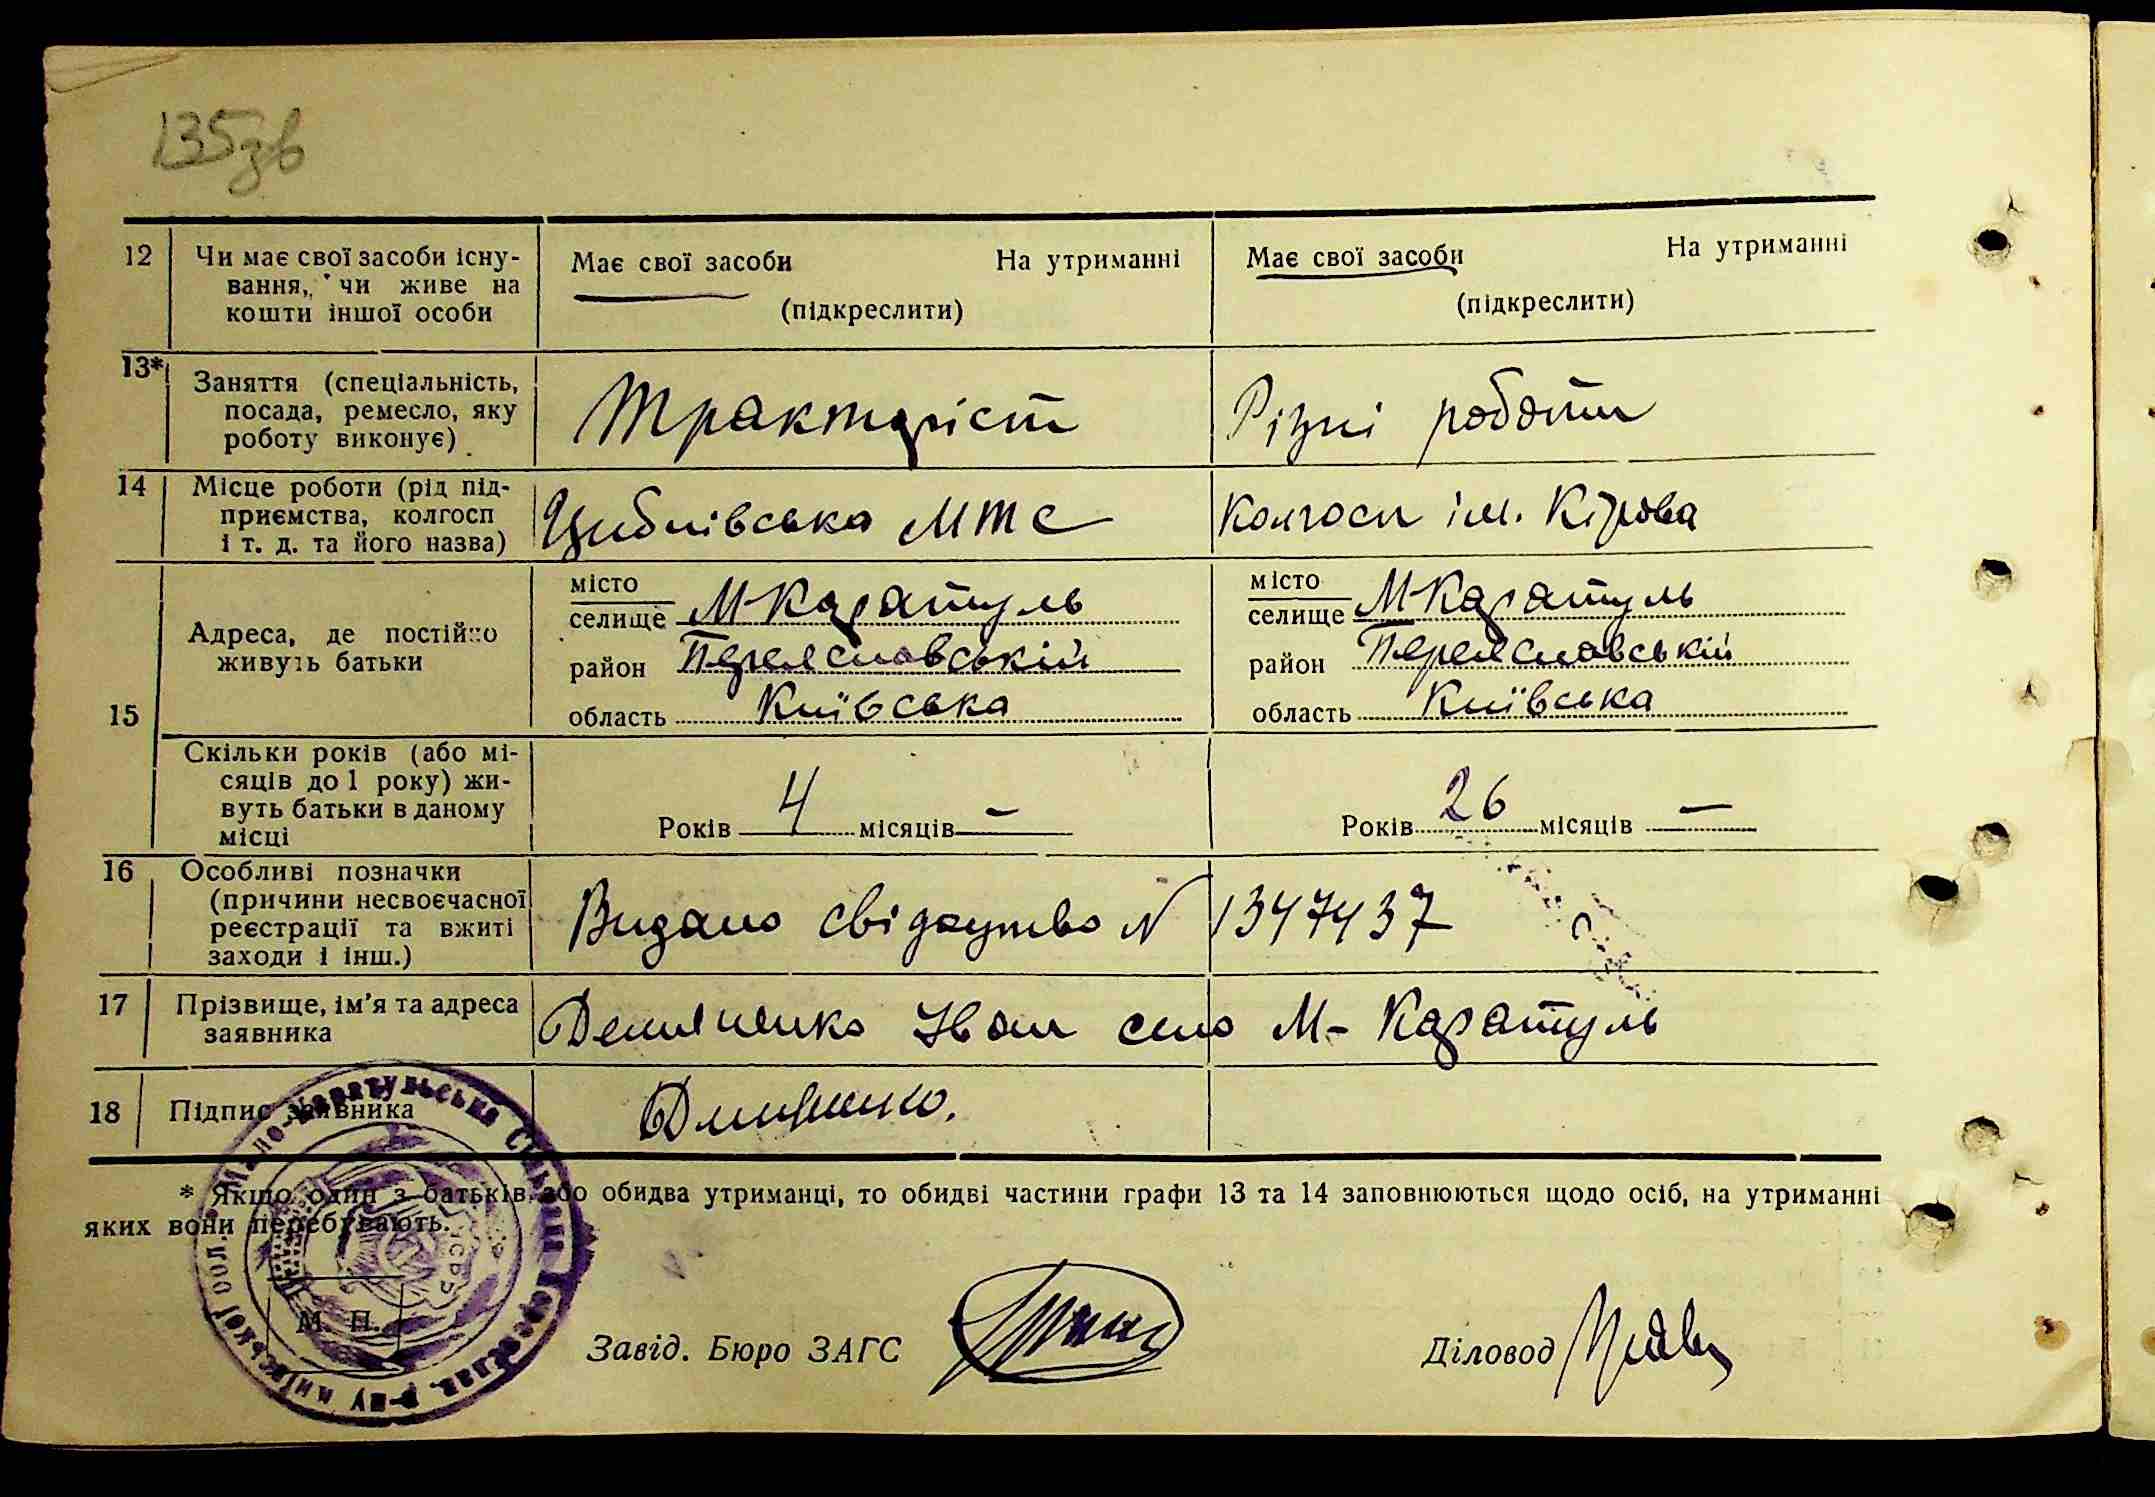 135зв
12 Чи має свої засоби існу-
вання, чи живе на
кошти іншої особи
Має свої засоби На утриманні
(підкреслити)
Має свої засоби На утриманні
(підкреслити)
13* Заняття (спеціальність,
посада, ремесло, яку
роботу виконує)
Тракторіст
Різні роботи
14 Місце роботи (рід під-
приємства, колгосп
і т. д. та його назва)
Циблівська МТС
Колгосп ім. Кірова
15 Адреса, де постійно
живуть батьки
місто
селище М-Каратуль
район Переяславській
область Київська
місто
селище М-Каратуль
район Переяславській
область Київська
Скільки років (або мі-
сяців до 1 року) жи-
вуть батьки в даному
місці
Років 4 місяців —
Років 26 місяців —
16 Особливі позначки
(причини несвоєчасної
реєстрації та вжиті
заходи і інш.)
Видано свідоцтво N 1347437
17 Прізвище, ім'я та адреса
заявника
Демяненко Іван село М-Каратуль
18 Підпис заявника
* Якщо один з батьків, або обидва утриманці, то обидві частини графи 13 та 14 заповнюються щодо осіб, на утриманні
яких вони перебувають.
Мало-Каратульська Сільська Переяслав. р-ну Київської обл.
УСРР
М. П.
Завід. Бюро ЗАГС
Діловод